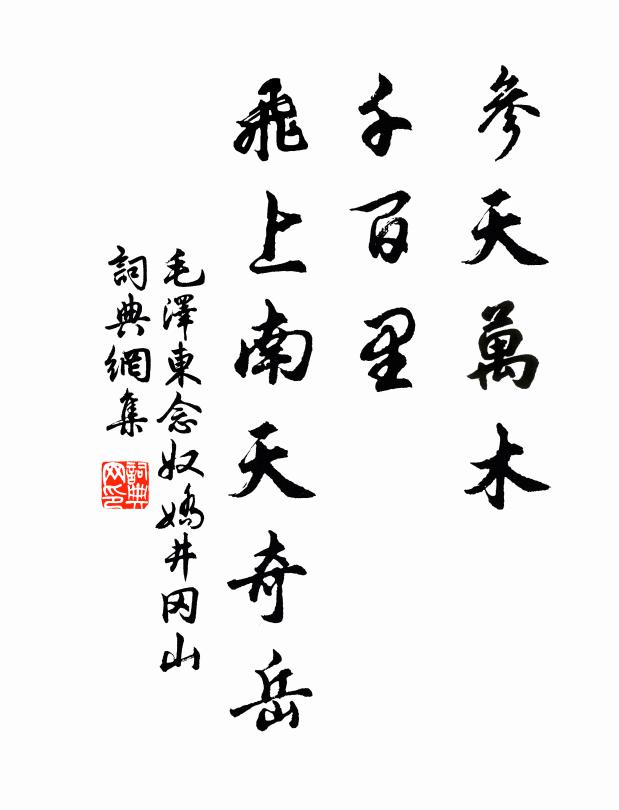 參天萬木
千百里
飛上南天奇岳
毛澤東念奴嬌井冈山
詞典網集
詞典网印